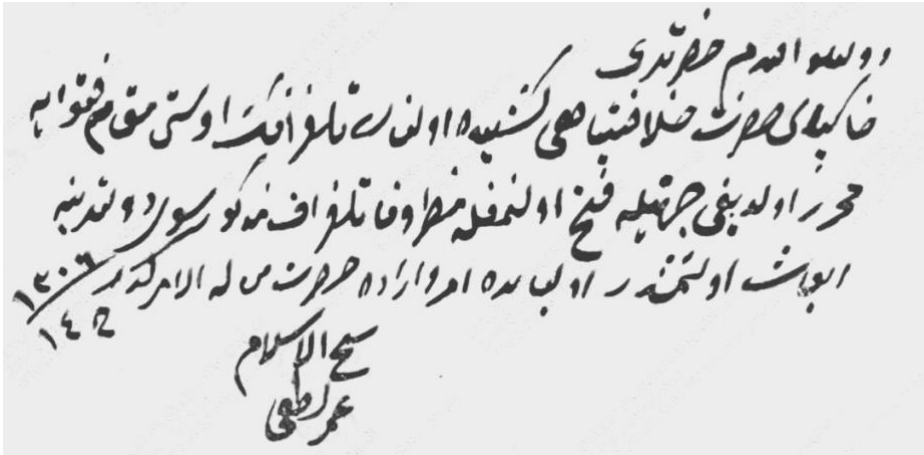 دولتلو افندم حضرتلری
خاکپای حضرت خلافتپناهی کشیده اولنان تلغرافک اوستی مقام فتوایه
محرر اولدیغی جهتیله فتح اولنمغله منظروفا تلغراف مذکور سوی دولتلرینه
اولنمشدر اولبابده امر و اراده حضرت من له الامرکدر
١٣٠٦
١٤ ج
شیخ الاسلام
عمر لطفی